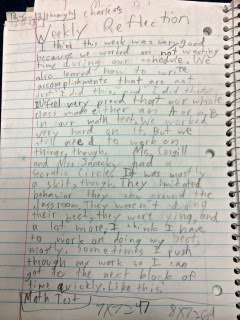 charless
Weekly Reflection
I think this week was very good
because we worked on not wasting
time during our schedule. We
also learned how to write
accomplishments that are not
just I did this, and I did that.
I feel very proud that our whole
class made either an A or a B
in our math test. We worked
very hard on it. But we
still need to work on
things, though. Ms. Corgill
and Mrs. had a
Socratic Circle. It was mostly
a skit, though. They imitated
behavior they saw around the
classroom. They weren't doing
their best, they were lying, and
a lot more. I think I have
to work on doing my best,
mostly. Sometimes I rush
through my work so I can
got to the next block of
time quickly. Like this.
Math Test